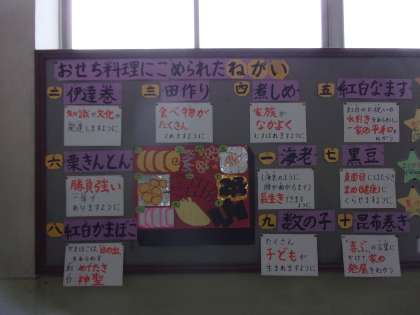 おせち料理にこめられたねがい
一 海老
海老のように
腰が曲がるまで
長生きできますように
二 伊達巻
知識や文化が
発達しますように
三 田作り
食べ物が
たくさん
とれますように
四 煮しめ
家族が
なかよく
むすばれますように
五 紅白なます
水引きをあらわし
一家の平和を
六 栗きんとん
勝負強い
一年で
ありますように
七 黒豆
真面目にはたらき
まめ(健康)に
くらせますように
八 紅白かまぼこ
かまぼこは、日の出
紅 めでたさ
白 神聖
九 数の子
たくさん
子どもが
生まれますように
十 昆布巻き
「喜ぶ」の言葉に
かけ一家の
発展をねがう